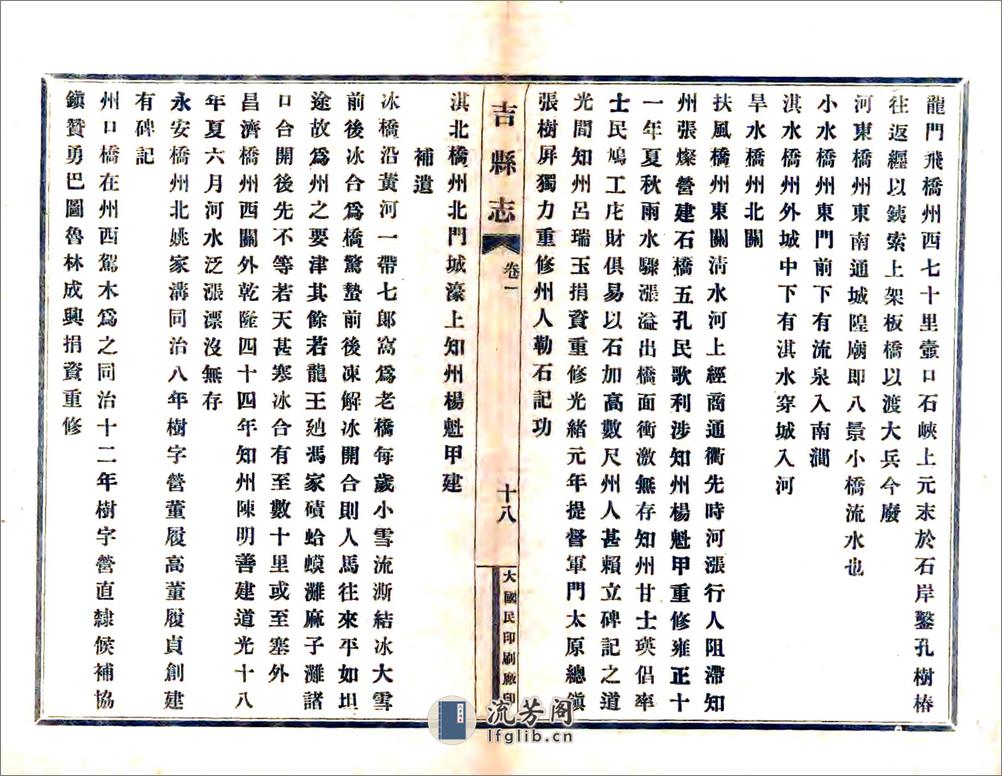 龍門飛橋州西七十里壺口石峽上元末於石岸鑿孔樹樁
往返纒以鉄索上架板橋以渡大兵今廢
河東橋州東南通城隍廟即八景小橋流水也
小水橋州東門前下有流泉入南澗
淇水橋州外城中下有淇水穿城入河
旱水橋州北關
扶風橋州東關淸水河上經商通衢先時河漲行人阻滯知
州張燦營建石橋五孔民歌利涉知州楊魁甲重修雍正十
一年夏秋雨水驟漲溢出橋面衝激無存知州甘士瑛倡率
士民鳩工庀財俱易以石加高數尺州人甚賴立碑記之道
光間知州呂瑞玉捐資重修光緒元年提督軍門太原總鎭
張樹屏獨力重修州人勒石記功
吉縣志
卷一
十八
大國民印刷廠印
淇北橋州北門城濠上知州楊魁甲建
補遺
冰橋沿黃河一帶七郞窩爲老橋每歲小雪流澌結冰大雪
前後冰合爲橋驚蟄前後凍解冰開合則人馬往來平如坦
途故爲州之要津其餘若龍王廸馮家磧蛤蟆灘麻子灘諸
口合開後先不等若天甚寒冰合有至數十里或至塞外
昌濟橋州西關外乾隆四十四年知州陳明善建道光十八
年夏六月河水泛漲漂沒無存
永安橋州北姚家溝同治八年樹字營董履高董履貞創建
有碑記
州口橋在州西駕木爲之同治十二年樹字營直隸候補協
鎭贊勇巴圖魯林成興捐資重修
流芳阁
lfglib.cn